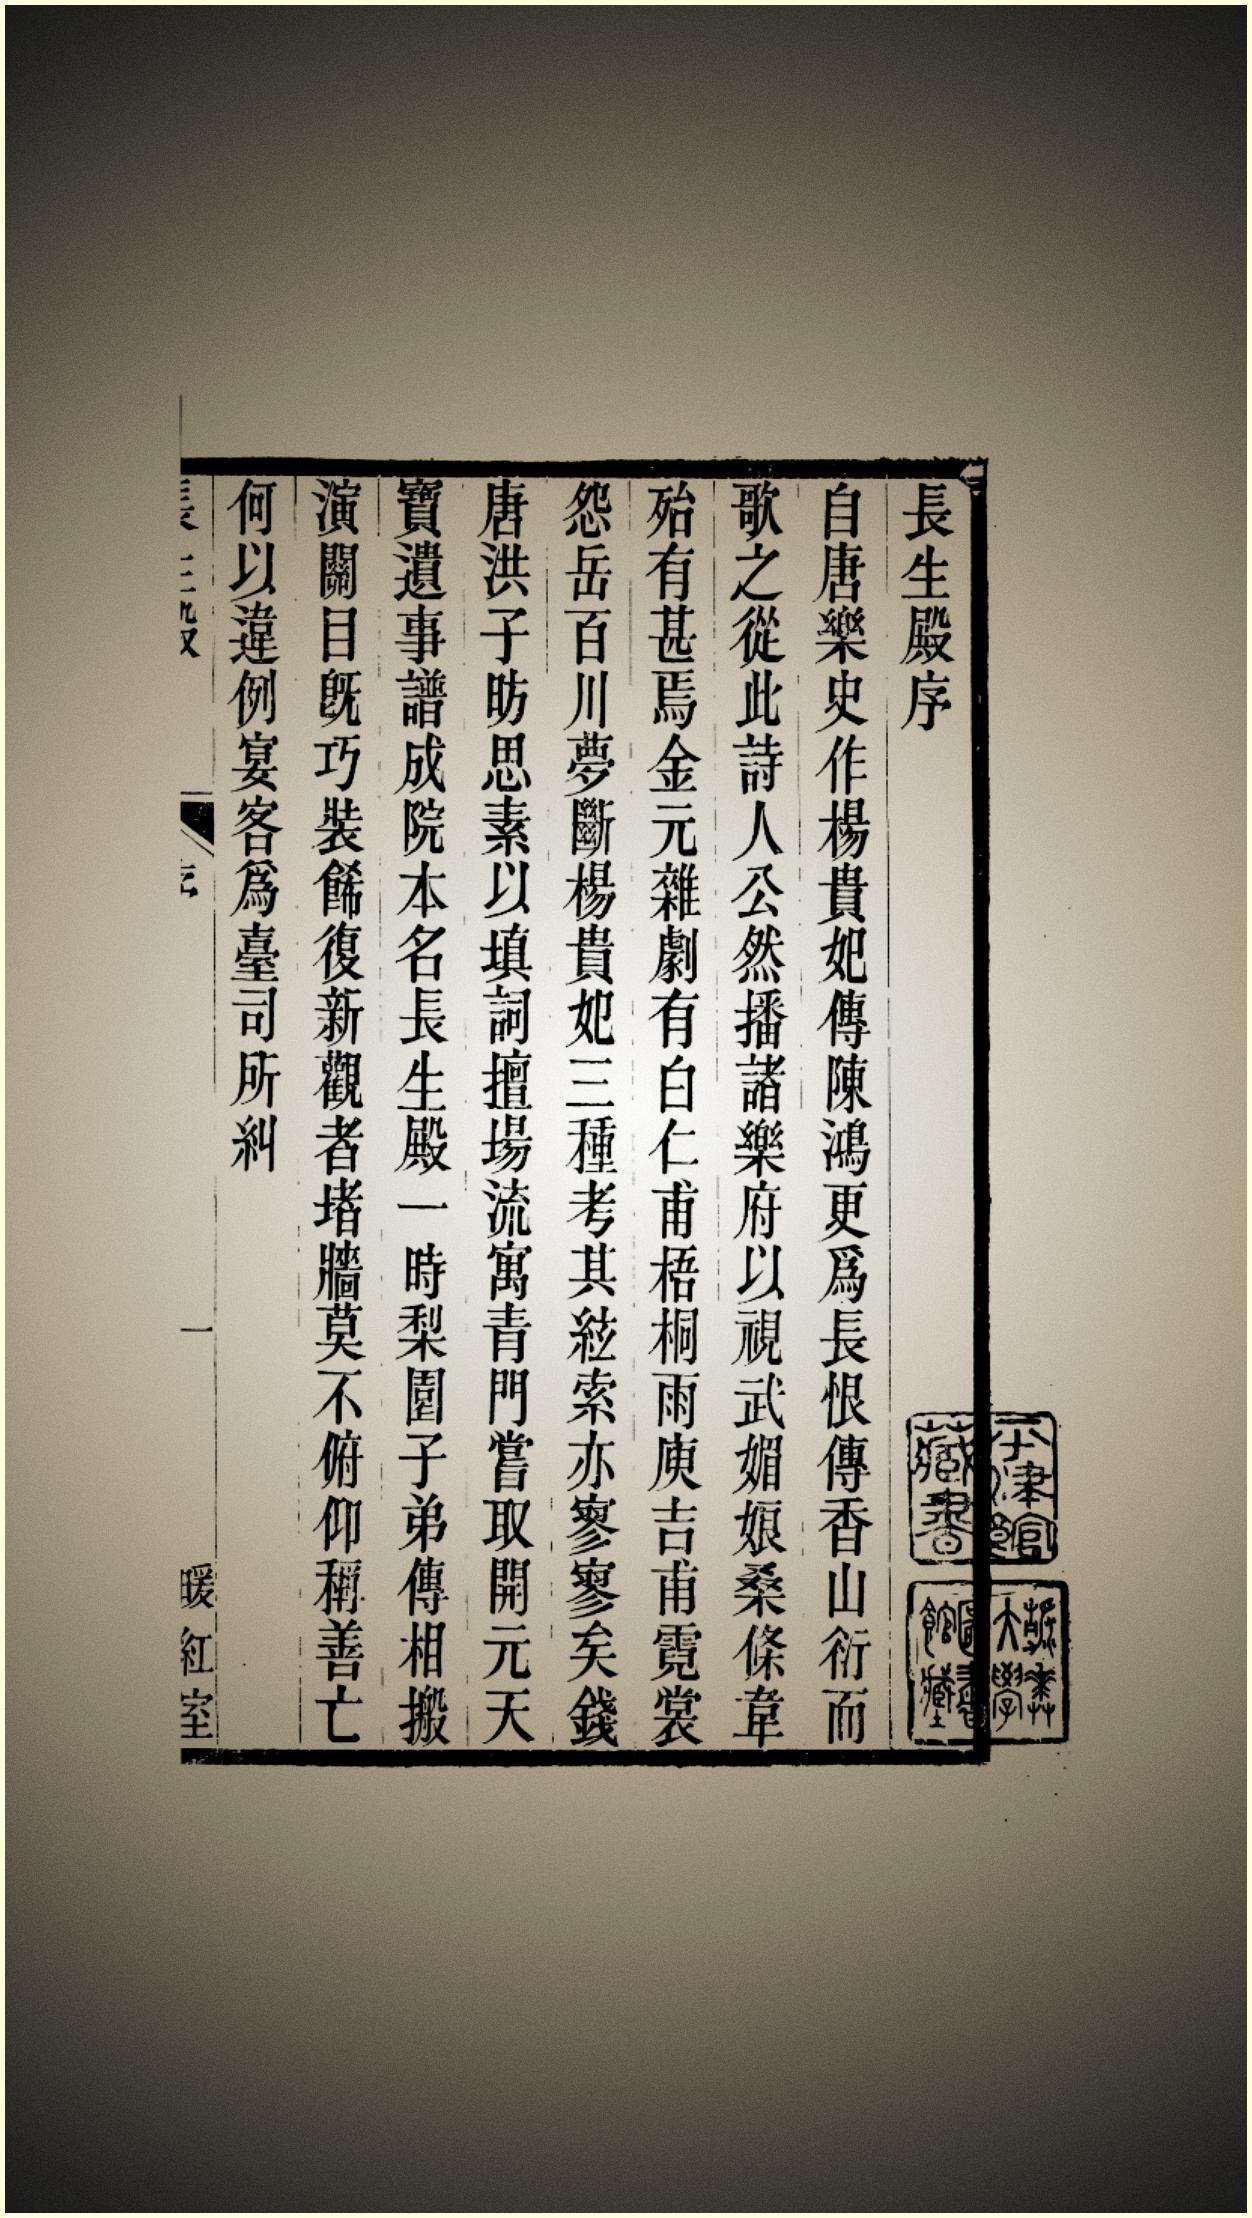 長生殿序
自唐樂史作楊貴妃傳陳鴻更爲長恨傳香山衍而
歌之從此詩人公然播諸樂府以視武媚娘桑條韋
殆有甚焉金元雜劇有白仁甫梧桐雨庾吉甫霓裳
怨岳百川夢斷楊貴妃三種考其絃索亦寥寥矣錢
唐洪子昉思素以填詞擅場流寓青門嘗取開元天
寶遺事譜成院本名長生殿一時梨園子弟傳相搬
演關目旣巧裝餙復新觀者堵牆莫不俯仰稱善亡
何以違例宴客爲臺司所糾
長生殿
序
一
暖紅室
藏書
大學
館藏